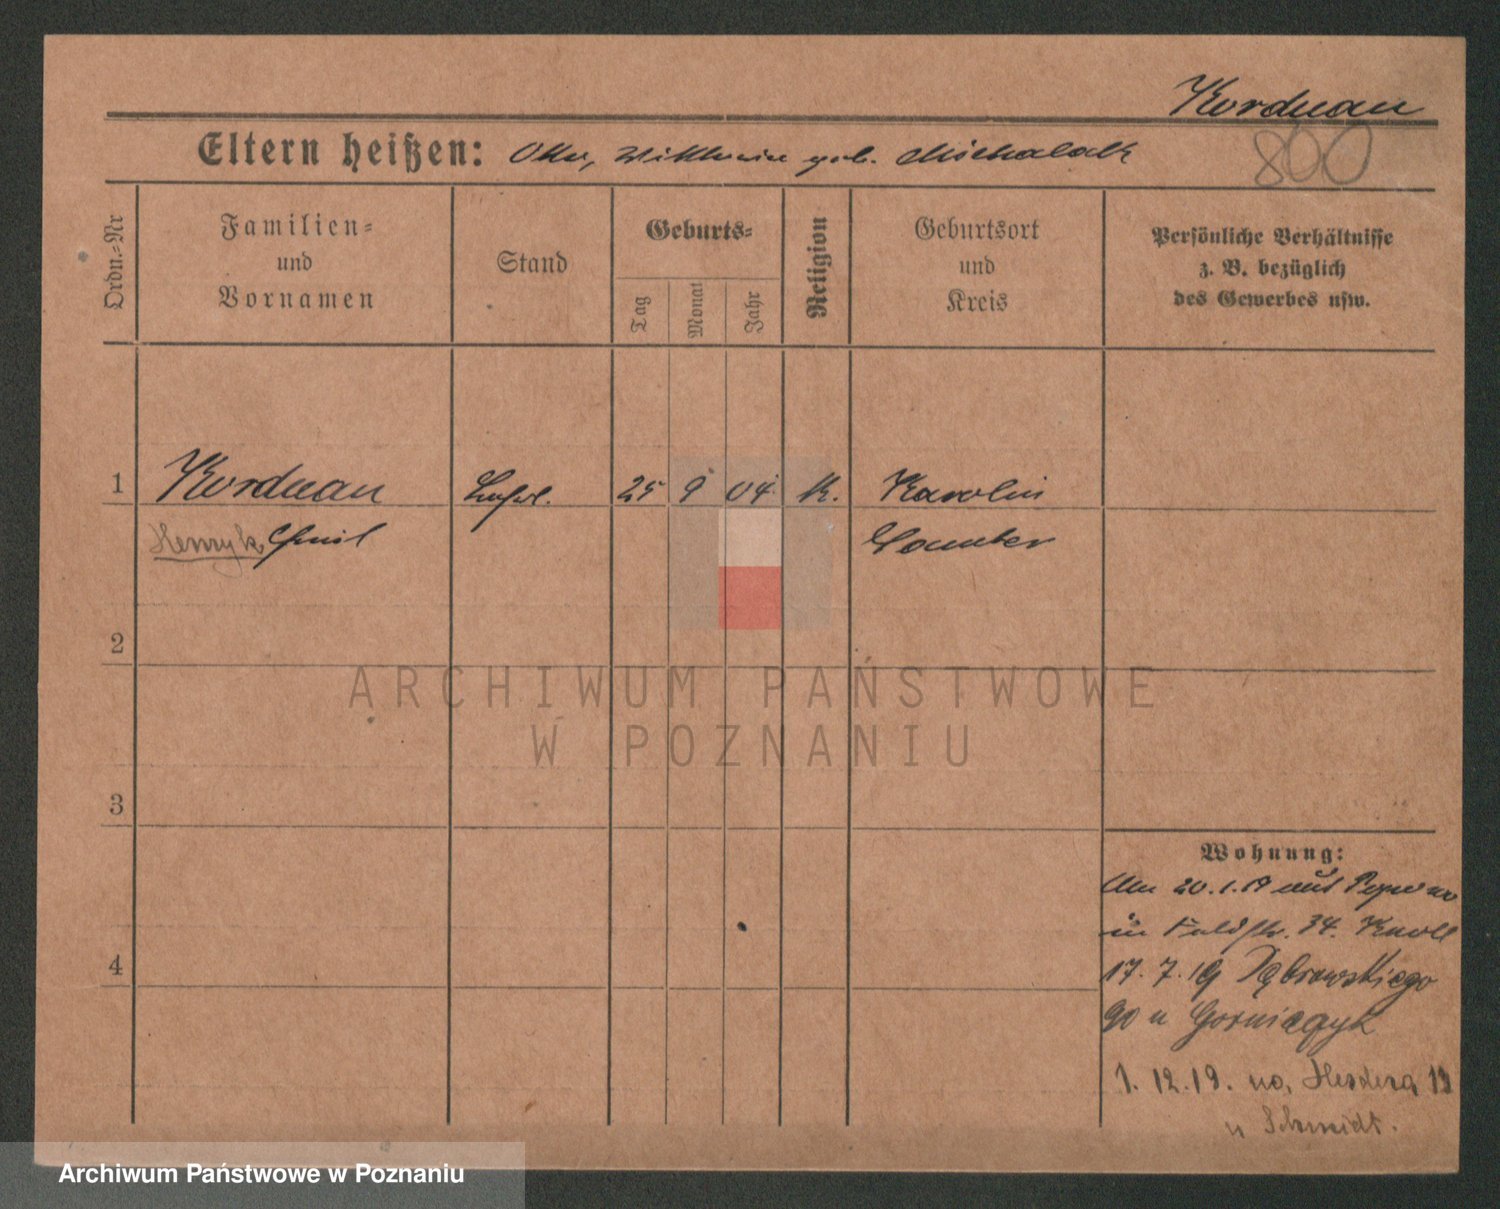 Korduan
800
Eltern heißen: Otto, Viktoria geb. Michalak
Ordn.=Nr
Familien=
und
Vornamen
Stand
Geburts=
Tag
Monat
Jahr
Religion
Geburtsort
und
Kreis
Persönliche Verhältnisse
z. B. bezüglich
des Gewerbes usw.
1 Korduan 25 9 04 K. Karolin
Henryk Emil
2
ARCHIWUM PAŃSTWOWE
W POZNANIU
3
Wohnung:
Am 20.1.19 aus
in Feldstr. 34. Knoll
4
17. 7. 19 Dąbrowskiego
90 u
1. 12. 19. na 13
u Schmidt.
Archiwum Państwowe w Poznaniu